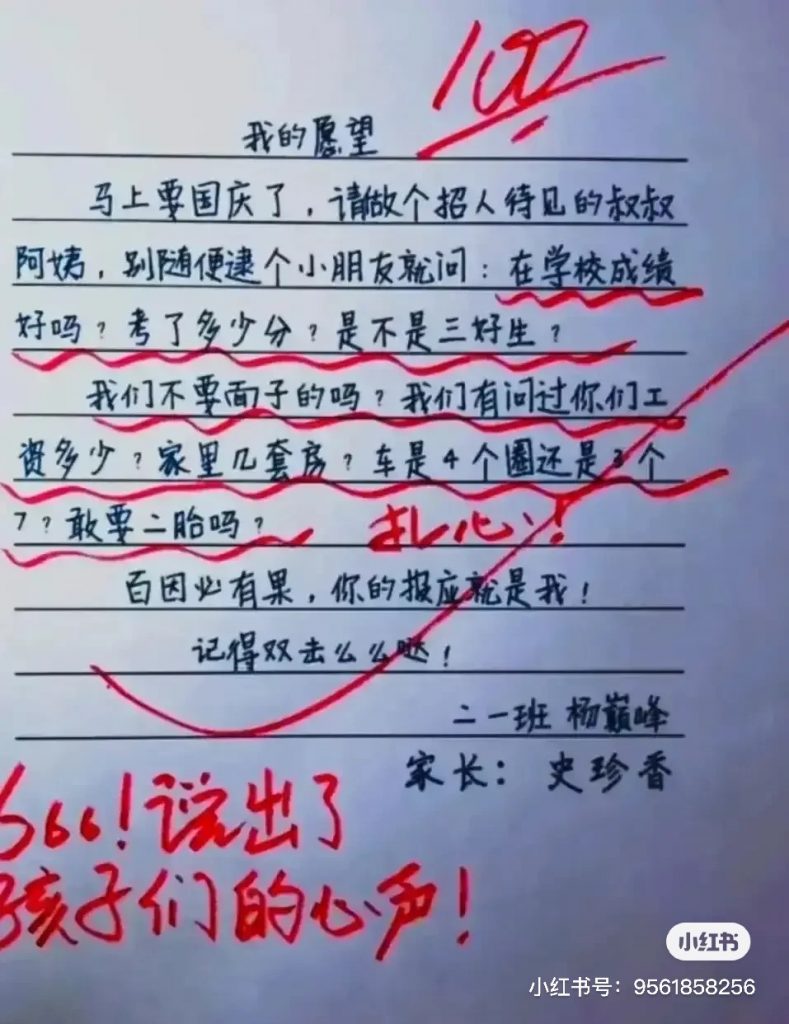 100
我的愿望
马上要国庆了，请做个招人待见的叔叔
阿姨，别随便逮个小朋友就问：在学校成绩
好吗？考了多少分？是不是三好生？
我们不要面子的吗？我们有问过你们工
资多少？家里几套房？车是4个圈还是3个
7？敢要二胎吗？
扎心！
百因必有果，你的报应就是我！
记得双击么么哒！
二一班 杨巅峰
家长：史珍香
666！说出了
孩子们的心声！
小红书
小红书号：9561858256